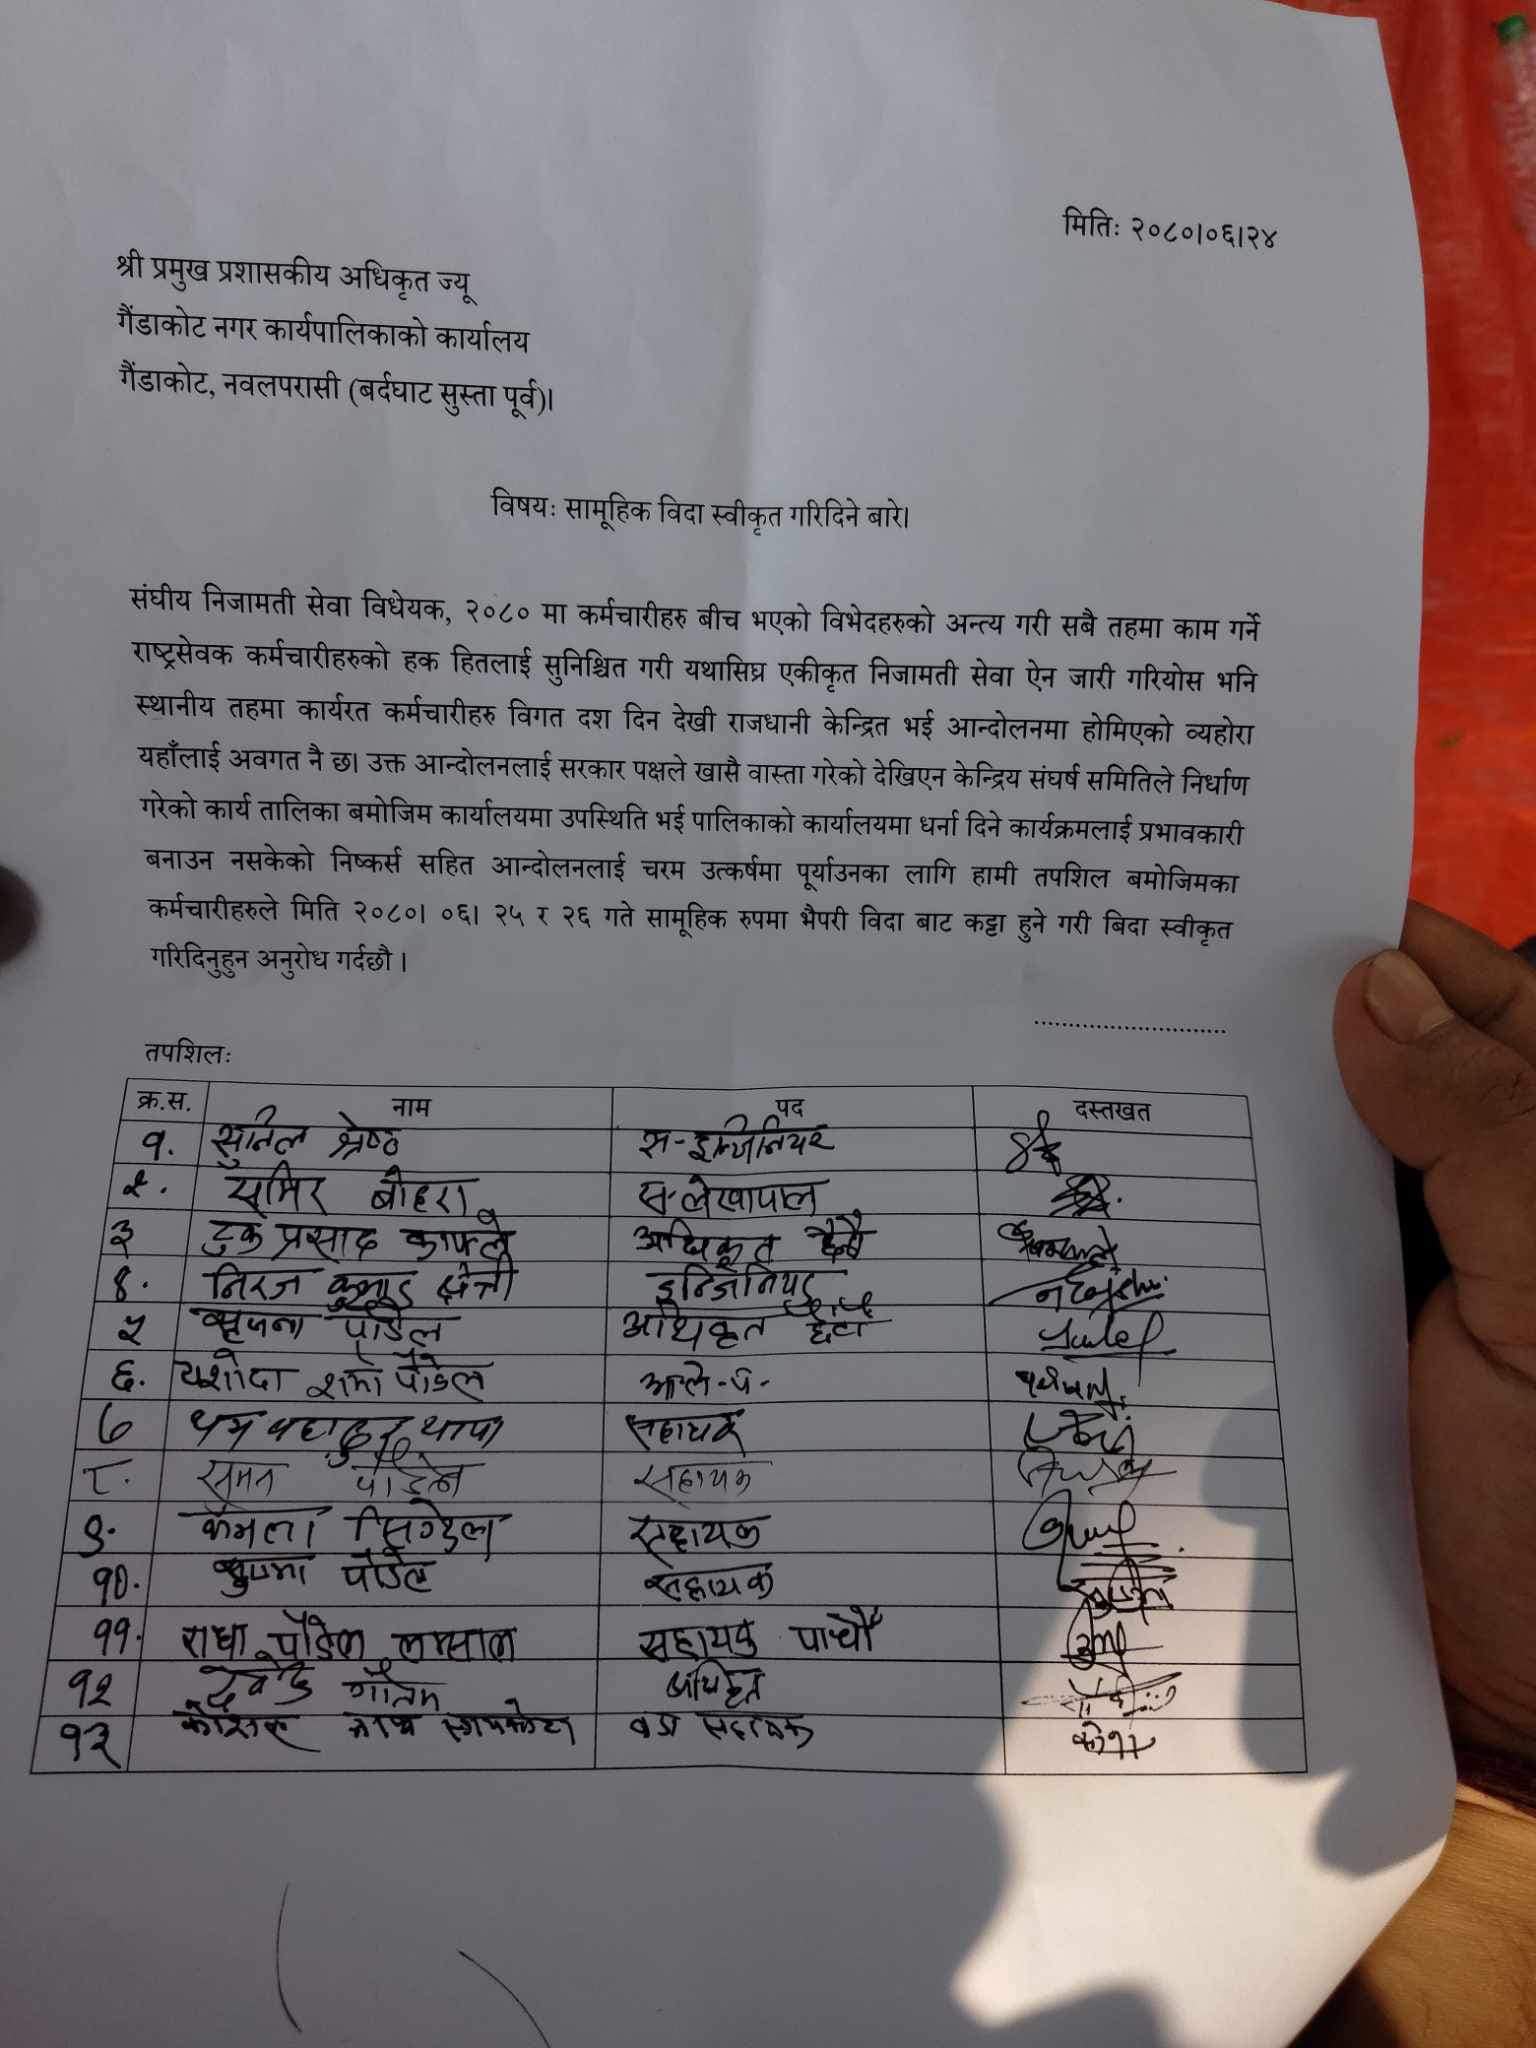 मितिः २०८०।०६।२४
श्री प्रमुख प्रशासकीय अधिकृत ज्यू
गैंडाकोट नगर कार्यपालिकाको कार्यालय
गैंडाकोट, नवलपरासी (बर्दघाट सुस्ता पूर्व)।
विषयः सामूहिक विदा स्वीकृत गरिदिने बारे।
संघीय निजामती सेवा विधेयक, २०८० मा कर्मचारीहरु बीच भएको विभेदहरुको अन्त्य गरी सबै तहमा काम गर्ने
राष्ट्रसेवक कर्मचारीहरुको हक हितलाई सुनिश्चित गरी यथासिघ्र एकीकृत निजामती सेवा ऐन जारी गरियोस भनि
स्थानीय तहमा कार्यरत कर्मचारीहरु विगत दश दिन देखी राजधानी केन्द्रित भई आन्दोलनमा होमिएको व्यहोरा
यहाँलाई अवगत नै छ। उक्त आन्दोलनलाई सरकार पक्षले खासै वास्ता गरेको देखिएन केन्द्रिय संघर्ष समितिले निर्धाण
गरेको कार्य तालिका बमोजिम कार्यालयमा उपस्थिति भई पालिकाको कार्यालयमा धर्ना दिने कार्यक्रमलाई प्रभावकारी
बनाउन नसकेको निष्कर्स सहित आन्दोलनलाई चरम उत्कर्षमा पूर्याउनका लागि हामी तपशिल बमोजिमका
कर्मचारीहरुले मिति २०८०। ०६। २५ र २६ गते सामूहिक रुपमा भैपरी विदा बाट कट्टा हुने गरी बिदा स्वीकृत
गरिदिनुहुन अनुरोध गर्दछौ ।
............................
तपशिलः
क्र.स. नाम पद दस्तखत
१. सुनिल श्रेष्ठ स-इन्जिनियर
२. समिर बोहरा स.लेखापाल
३ टुक प्रसाद काफ्ले अधिकृत छैठौं
४. निरज कुमार क्षेत्री इन्जिनियर
५ सृजना पौडेल अधिकृत छैटौं
६. यशोदा शर्मा पौडेल आ.ले.प.
७ धम बहादुर थापा सहायक
८. सुमन पौडेल सहायक
९. कमला सिग्देल सहायक
१०. सुष्मा पौडेल सहायक
११. राधा पौडेल लम्साल सहायक पाचौं
१२ गौतम अधिकृत
१३ नाथ सापकोटा वडा सहायक